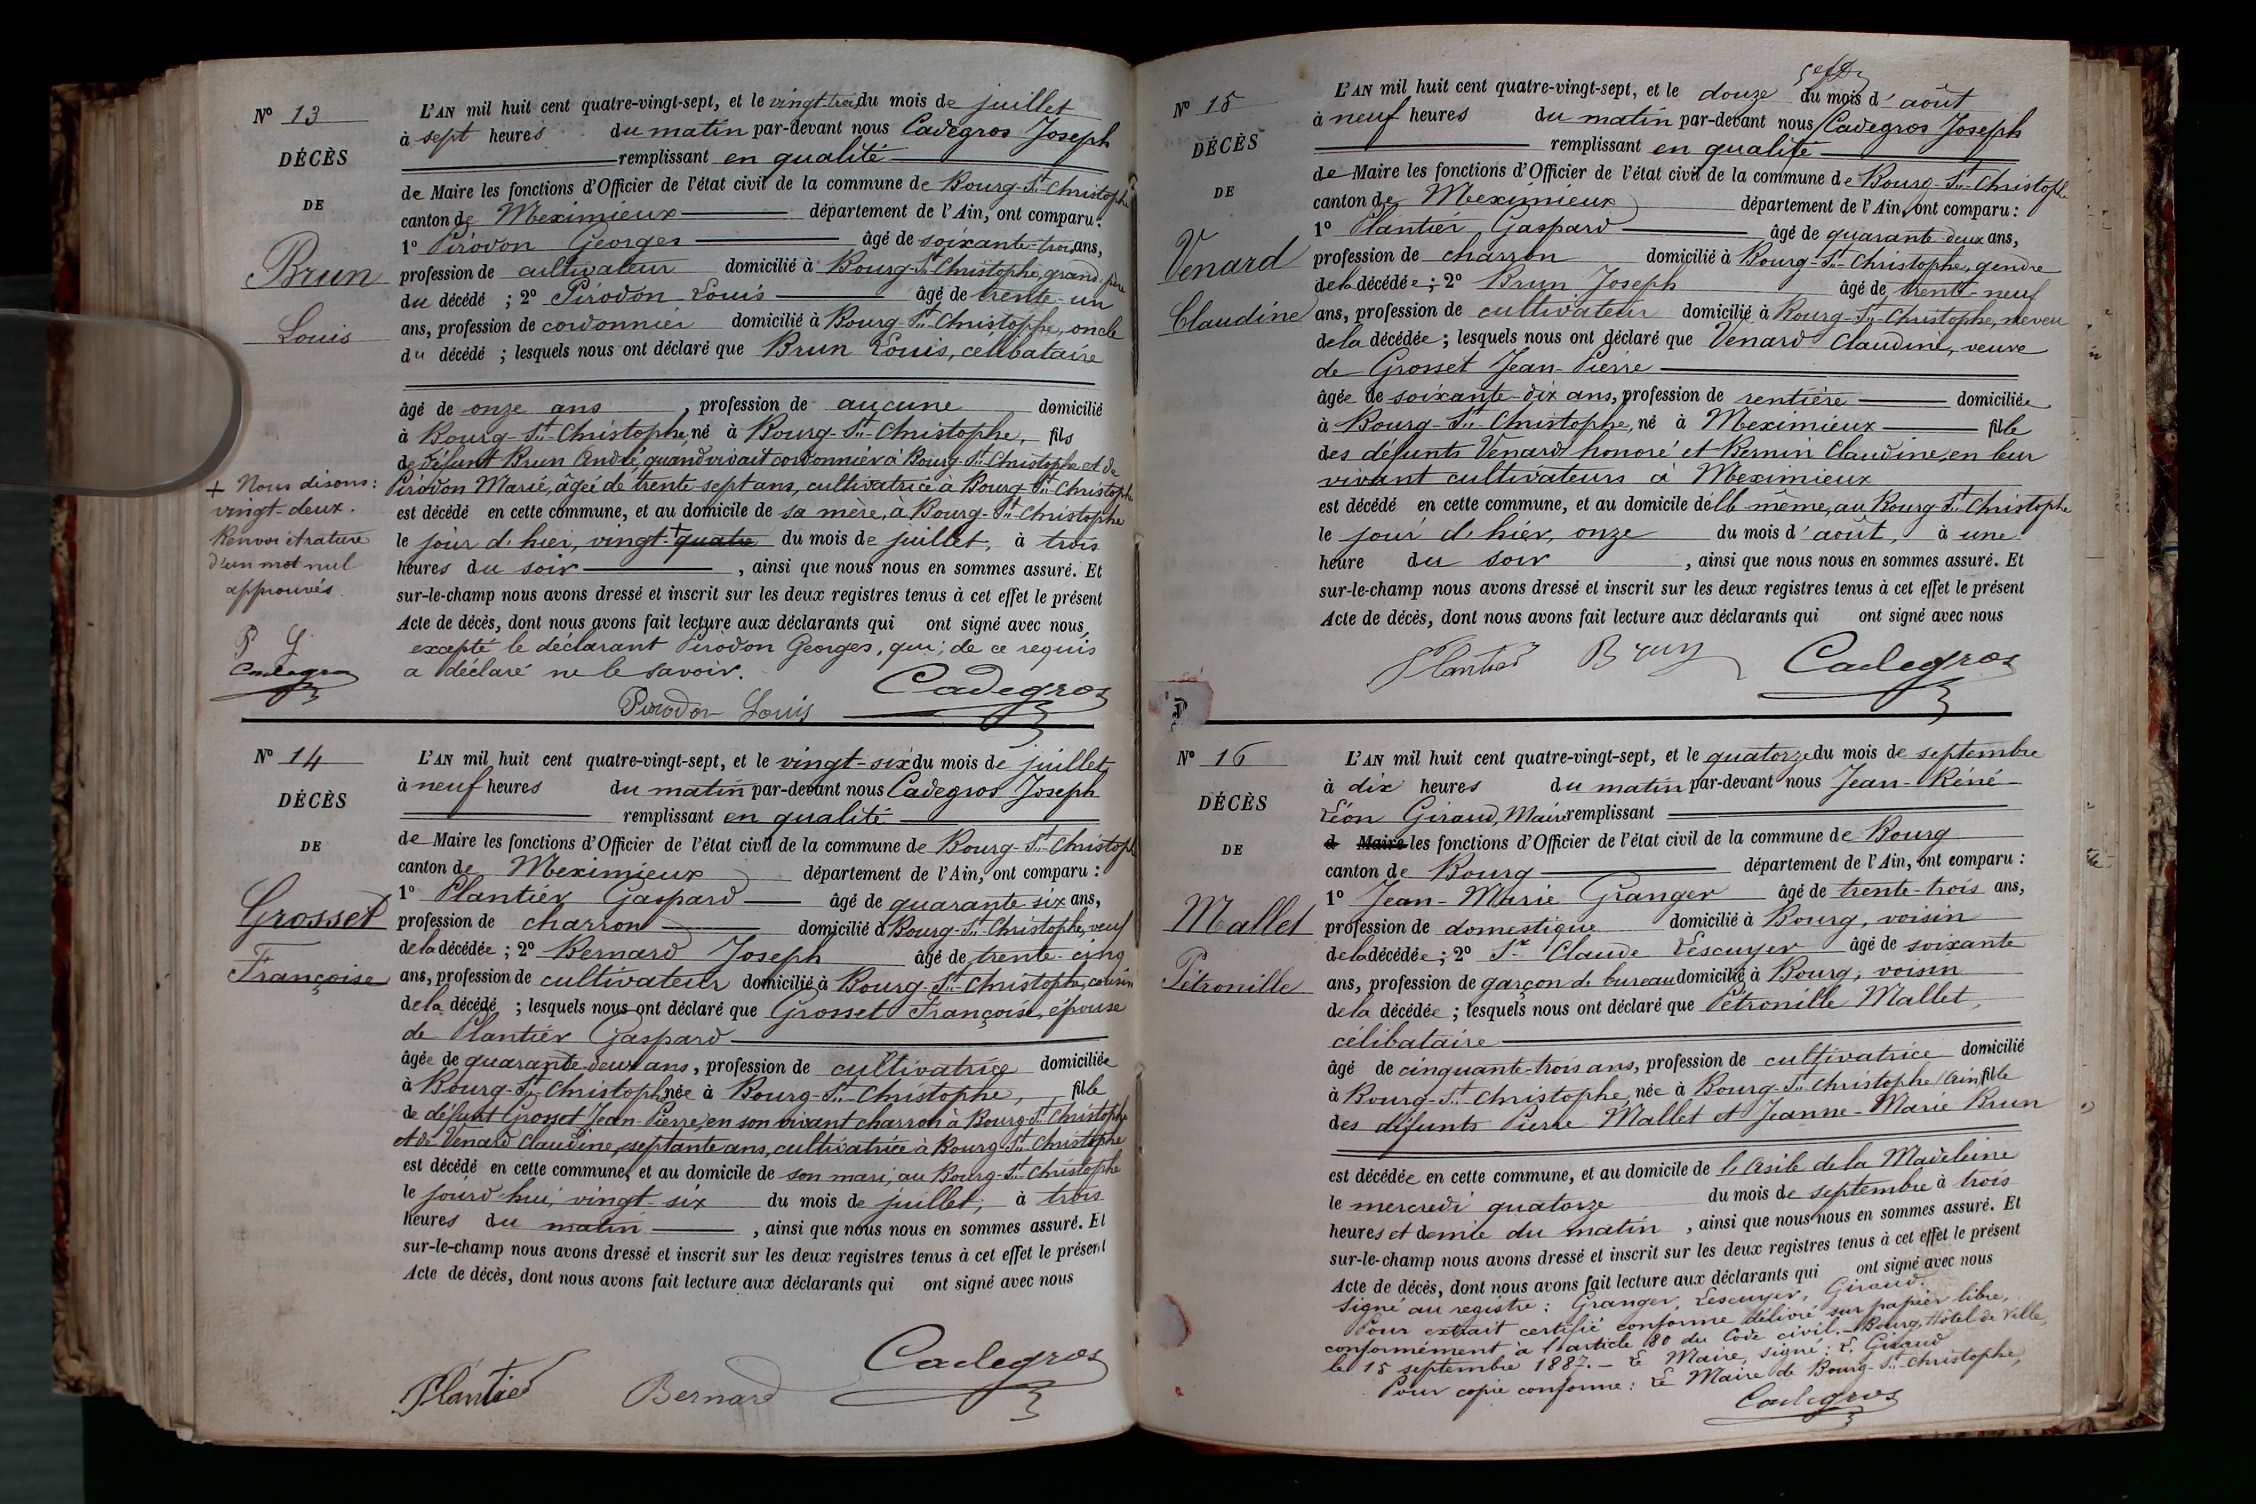 Nº 13
DÉCÈS
DE
Brun
Louis
L'AN mil huit cent quatre-vingt-sept, et le vingt-trois du mois de juillet
à sept heures du matin par-devant nous Cadegros Joseph
remplissant en qualité
de Maire les fonctions d'Officier de l'état civil de la commune de Bourg-St-Christophe
canton de Meximieux département de l'Ain, ont comparu :
1º Pirodon Georges âgé de soixante-trois ans,
profession de cultivateur domicilié à Bourg-St-Christophe, grand-père
du décédé ; 2º Pirodon Louis âgé de trente-un
ans, profession de cordonnier domicilié à Bourg-St-Christophe, oncle
du décédé ; lesquels nous ont déclaré que Brun Louis, célibataire
âgé de onze ans , profession de aucune domicilié
à Bourg-St-Christophe, né à Bourg-St-Christophe, fils
de défunt Brun André, quand vivait cordonnier à Bourg-St-Christophe et de
Pirodon Marie, âgée de trente-sept ans, cultivatrice à Bourg-St-Christophe
est décédé en cette commune, et au domicile de sa mère, à Bourg-St-Christophe
le jour d'hier, vingt-+quatre du mois de juillet, à trois
heures du soir , ainsi que nous nous en sommes assuré. Et
sur-le-champ nous avons dressé et inscrit sur les deux registres tenus à cet effet le présent
Acte de décès, dont nous avons fait lecture aux déclarants qui ont signé avec nous,
excepté le déclarant Pirodon Georges, qui, de ce requis
a déclaré ne le savoir.
Cadegros
Pirodon Louis
+ Nous disons :
vingt-deux.
Renvoi et rature
d'un mot nul
approuvés.
P L
Cadegros
Nº 14
DÉCÈS
DE
Grosset
Françoise
L'AN mil huit cent quatre-vingt-sept, et le vingt-six du mois de juillet
à neuf heures du matin par-devant nous Cadegros Joseph
remplissant en qualité
de Maire les fonctions d'Officier de l'état civil de la commune de Bourg-St-Christophe
canton de Meximieux département de l'Ain, ont comparu :
1º Plantier Gaspard âgé de quarante-six ans,
profession de charron domicilié à Bourg-St-Christophe, veuf
de la décédée ; 2º Bernard Joseph âgé de trente-cinq
ans, profession de cultivateur domicilié à Bourg-St-Christophe, cousin
de la décédé ; lesquels nous ont déclaré que Grosset Françoise, épouse
de Plantier Gaspard
âgée de quarante-deux ans, profession de cultivatrice domiciliée
à Bourg-St-Christophe née à Bourg-St-Christophe, fille
de défunt Grosset Jean-Pierre, en son vivant charron à Bourg-St-Christophe
et de Venard Claudine, septante ans, cultivatrice à Bourg-St-Christophe
est décédé en cette commune, et au domicile de son mari, au Bourg-St-Christophe
le jourd'hui, vingt-six du mois de juillet, à trois
heures du matin , ainsi que nous nous en sommes assuré. Et
sur-le-champ nous avons dressé et inscrit sur les deux registres tenus à cet effet le présent
Acte de décès, dont nous avons fait lecture aux déclarants qui ont signé avec nous
Plantier Bernard Cadegros
Nº 15
DÉCÈS
DE
Venard
Claudine
L'AN mil huit cent quatre-vingt-sept, et le douze du mois d'août
à neuf heures du matin par-devant nous Cadegros Joseph
remplissant en qualité
de Maire les fonctions d'Officier de l'état civil de la commune de Bourg-St-Christophe
canton de Meximieux département de l'Ain, ont comparu :
1º Plantier Gaspard âgé de quarante-deux ans,
profession de charron domicilié à Bourg-St-Christophe, gendre
de la décédée ; 2º Brun Joseph âgé de trente-neuf
ans, profession de cultivateur domicilié à Bourg-St-Christophe, neveu
de la décédée ; lesquels nous ont déclaré que Venard Claudine, veuve
de Grosset Jean-Pierre
âgée de soixante-dix ans, profession de rentière domiciliée
à Bourg-St-Christophe, né à Meximieux fille
des défunts Venard honoré et Bernin Claudine, en leur
vivant cultivateurs à Meximieux
est décédé en cette commune, et au domicile d'elle même, au Bourg-St-Christophe
le jour d'hier, onze du mois d'août, à une
heure du soir , ainsi que nous nous en sommes assuré. Et
sur-le-champ nous avons dressé et inscrit sur les deux registres tenus à cet effet le présent
Acte de décès, dont nous avons fait lecture aux déclarants qui ont signé avec nous
Plantier Brun Cadegros
Nº 16
DÉCÈS
DE
Mallet
Pétronille
L'AN mil huit cent quatre-vingt-sept, et le quatorze du mois de septembre
à dix heures du matin par-devant nous Jean-Réné-
Léon Giraud, Maire remplissant
d Maire les fonctions d'Officier de l'état civil de la commune de Bourg
canton de Bourg département de l'Ain, ont comparu :
1º Jean-Marie Granger âgé de trente-trois ans,
profession de domestique domicilié à Bourg, voisin
de la décédée ; 2º Sr Claude Lescuyer âgé de soixante
ans, profession de garçon de bureau domicilié à Bourg, voisin
de la décédée ; lesquels nous ont déclaré que Pétronille Mallet,
célibataire
âgé de cinquante-trois ans, profession de cultivatrice domicilié
à Bourg-St-Christophe, née à Bourg-St-Christophe (Ain) fille
des défunts Pierre Mallet et Jeanne-Marie Brun
est décédée en cette commune, et au domicile de l'Asile de la Madeleine
le mercredi quatorze du mois de septembre à trois
heures et demie du matin , ainsi que nous nous en sommes assuré. Et
sur-le-champ nous avons dressé et inscrit sur les deux registres tenus à cet effet le présent
Acte de décès, dont nous avons fait lecture aux déclarants qui ont signé avec nous
Signé au registre : Granger, Lescuyer, Giraud.
Pour extrait certifié conforme délivré sur papier libre,
conformément à l'article 80 du Code civil. - Bourg, Hôtel de Ville,
le 15 septembre 1887. - Le Maire, signé : L. Giraud
Pour copie conforme : Le Maire de Bourg-St-Christophe,
Cadegros